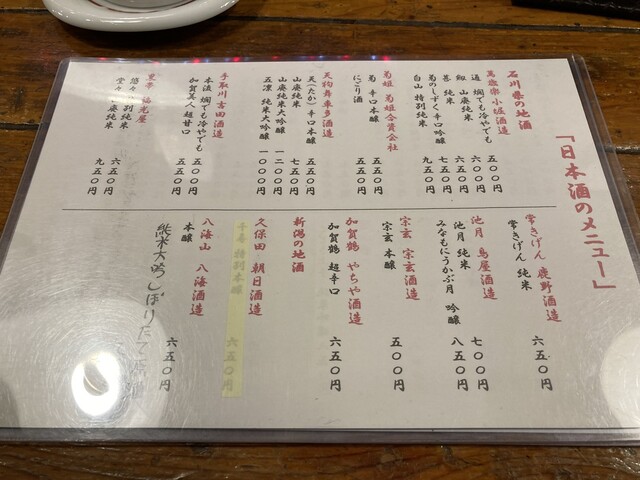 「日本酒のメニュー」
石川県の地酒
萬歳楽 小堀酒造
通 燗でも冷やでも 五〇〇円
山廃純米 六〇〇円
甚 純米 六五〇円
菊のしずく 辛口吟醸 七五〇円
白山 特別純米 九五〇円
菊姫 菊姫合資会社
菊 辛口本醸 五五〇円
にごり酒 五五〇円
天狗舞 車多酒造
天(たか) 辛口本醸 五五〇円
山廃純米 七五〇円
山廃純米大吟醸 一二〇〇円
五凛 純米大吟醸 一〇〇〇円
手取川 吉田酒造
本流 燗でも冷やでも 五〇〇円
加賀美人 超甘口 五五〇円
黒帯 福光屋
悠々 特別純米 六五〇円
堂々 山廃純米 九五〇円
常きげん 鹿野酒造
常きげん 純米 六五〇円
池月 鳥屋酒造
池月 純米 七〇〇円
みなもにうかぶ月 吟醸 八五〇円
宗玄 宗玄酒造
宗玄 本醸 五〇〇円
加賀鶴 やちや酒造
加賀鶴 超辛口 六五〇円
新潟の地酒
久保田 朝日酒造
千寿 特別本醸 六五〇円
八海山 八海酒造
本醸 六五〇円
純米大吟しぼりたて